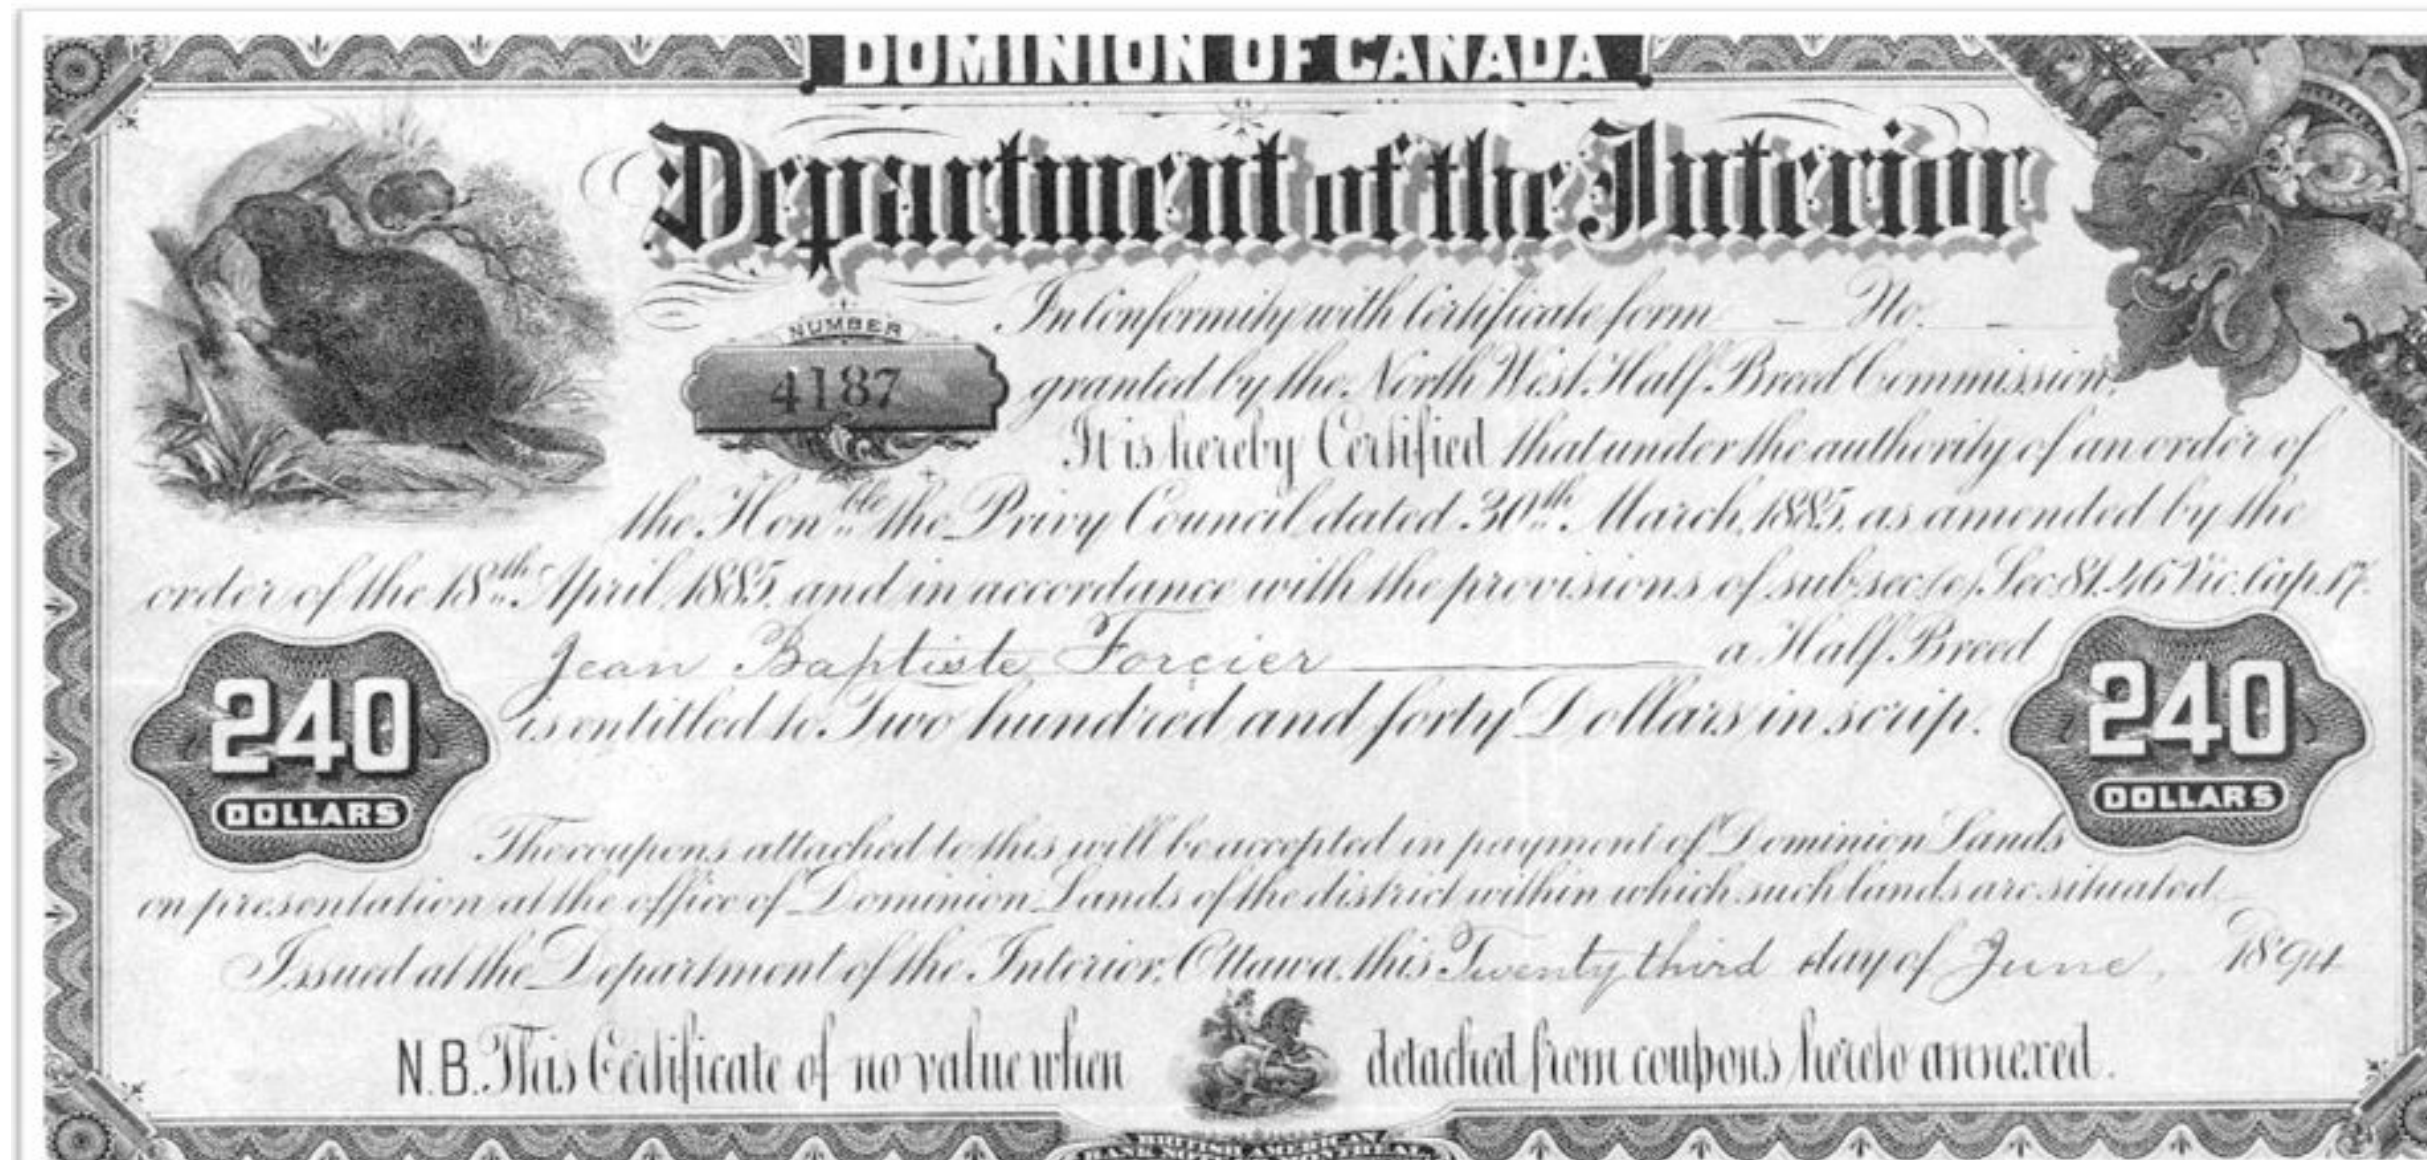 DOMINION OF CANADA
Department of the Interior
In Conformity with Certificate form _ No. _
NUMBER
4187
granted by the North West Half Breed Commission.
It is hereby Certified that under the authority of an order of
the Hon.ble the Privy Council dated 30th. March, 1885, as amended by the
order of the 18th. April, 1885, and in accordance with the provisions of sub sec (e) Sec 81. 46 Vic. Cap. 17.
Jean Baptiste Forcier a Half Breed
is entitled to Two hundred and forty Dollars in scrip.
240
DOLLARS
240
DOLLARS
The coupons attached to this will be accepted in payment of Dominion Lands
on presentation at the office of Dominion Lands of the district within which such lands are situated.
Issued at the Department of the Interior, Ottawa, this Twenty third day of June, 1894
N.B. This Certificate of no value when detached from coupons hereto annexed.
BRITISH AMERICAN
BANK NOTE MONTREAL